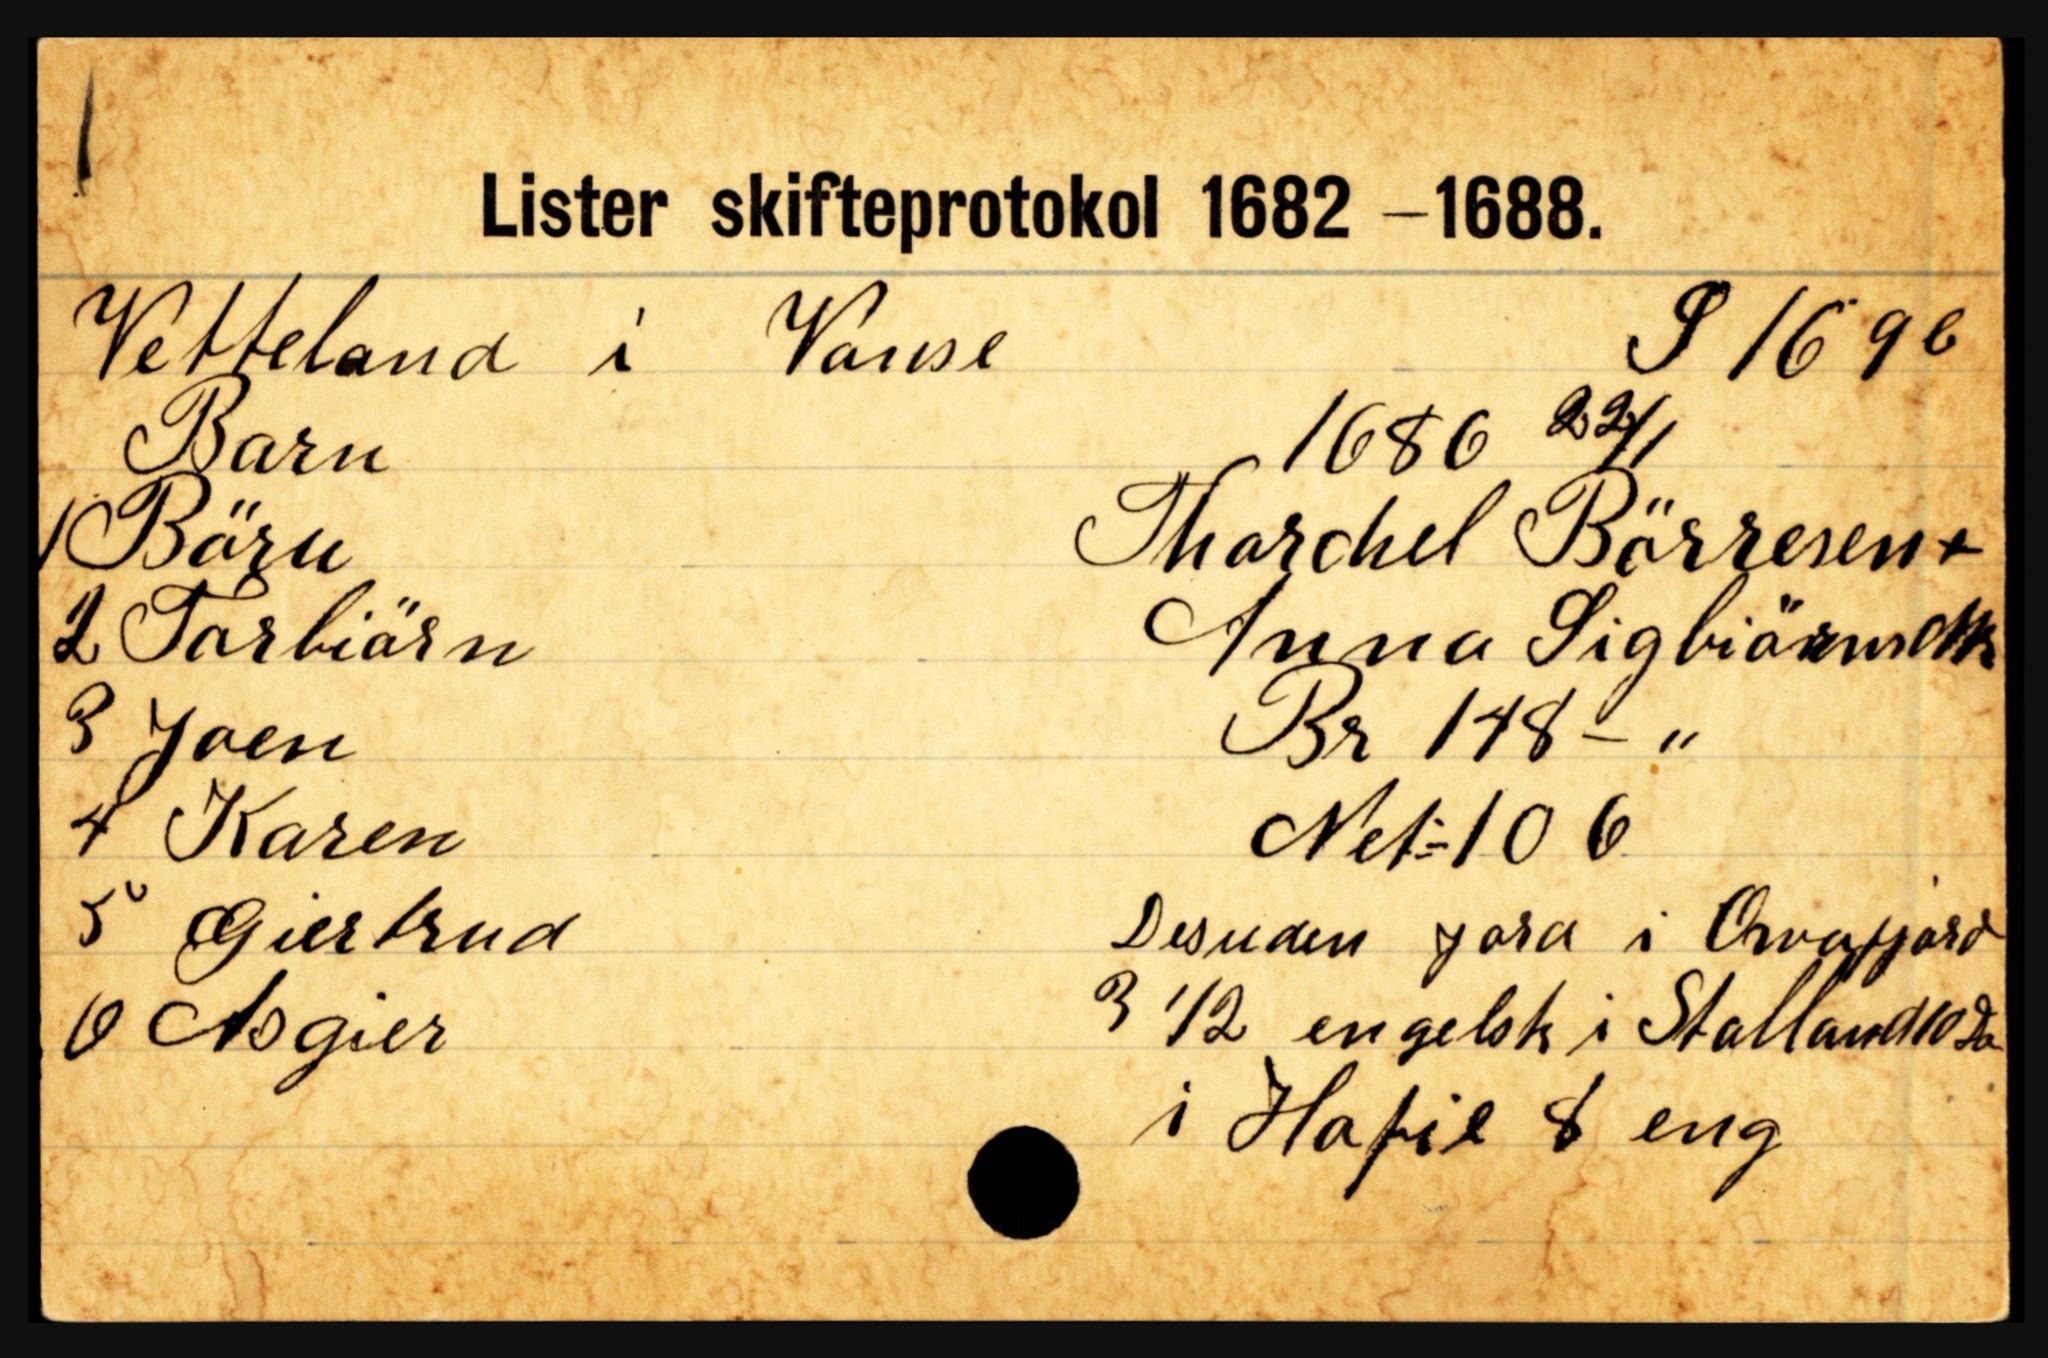 Lister skifteprotokol 1682 – 1688.
Vetteland i Vanse S 169b
Barn 1686 22/1
1 Böru Thorchel Börresen +
2 Torbiörn Anna Sigbiörnsdtr
3 Joen Br 148 – "
4 Karen Net = 106
5 Giertrud Desuden jord i
6 Asgier 3 1/2 engelsk i Stalland 10 Do
i Hafie 8 eng